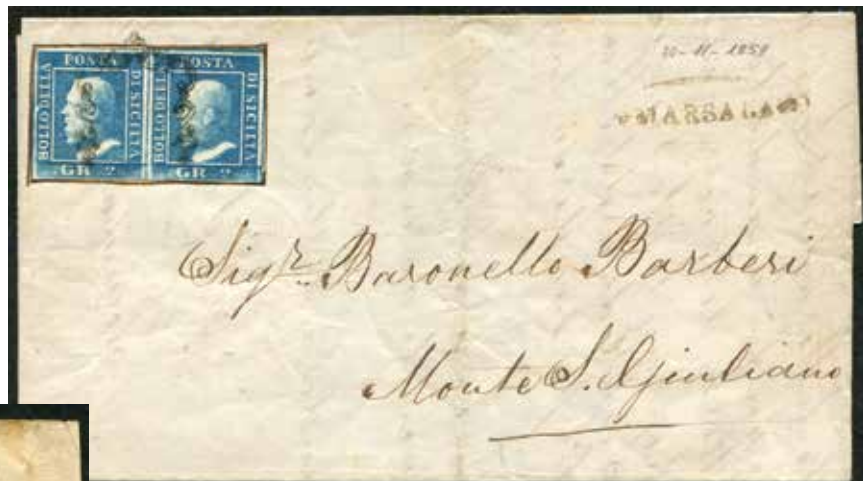 BOLLO DELLA POSTA DI SICILIA
GR 2
BOLLO DELLA POSTA DI SICILIA
GR 2
20-11-1859
MARSALA
Sigr. Baronello Barberi
Monte S. Giuliano